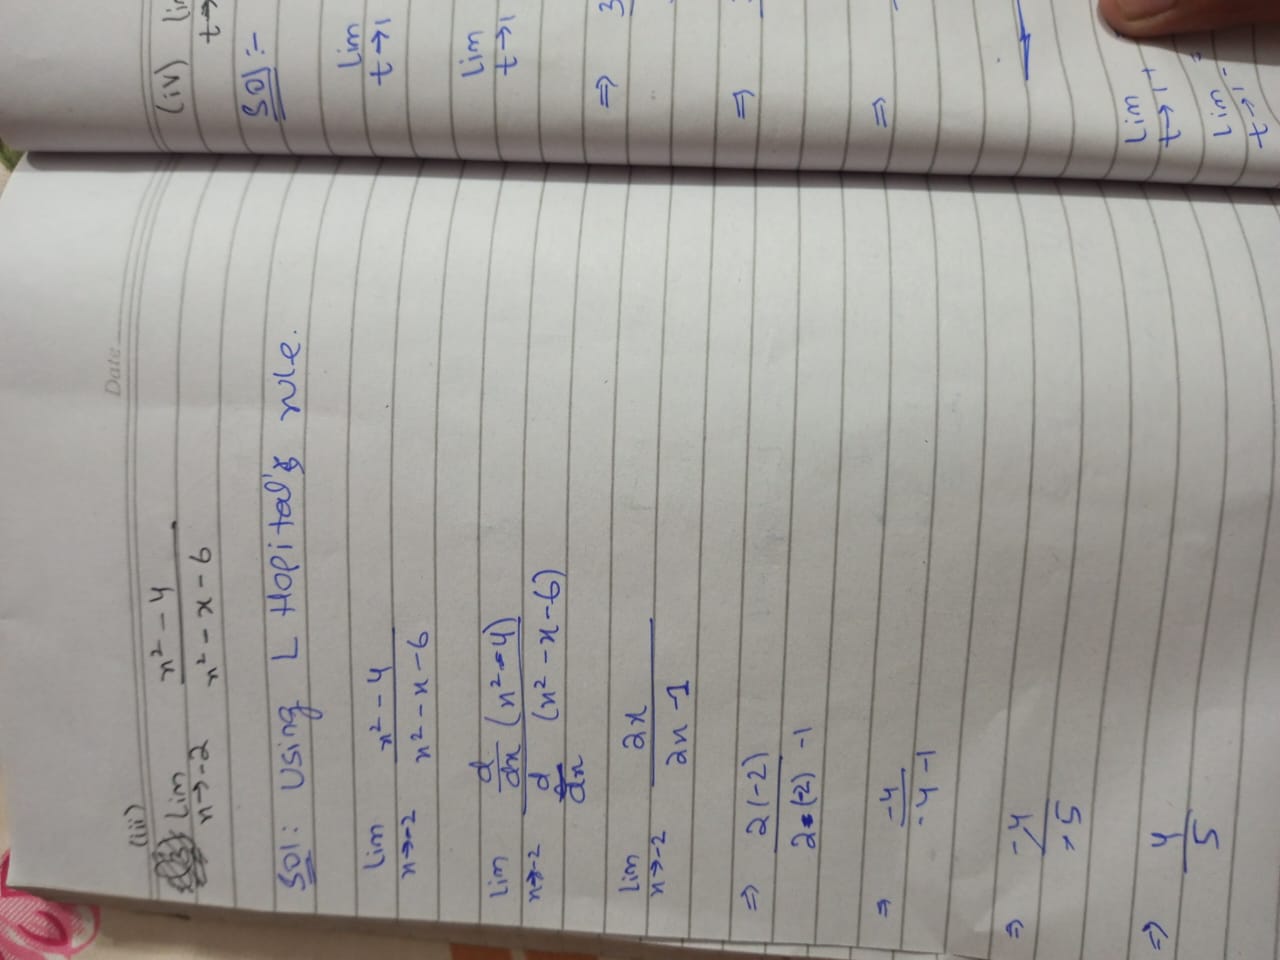 Date
(iii)
Lim x→-2 x² - 4 / x² - x - 6
Sol: Using L Hopital's rule.
Lim x→-2 x² - 4 / x² - x - 6
Lim x→-2 d/dx (x² - 4) / d/dx (x² - x - 6)
Lim x→-2 2x / 2x - 1
⇒ 2(-2) / 2(-2) - 1
⇒ -4 / -4 - 1
⇒ -4 / -5
⇒ 4 / 5
(iv)
t→
Sol :-
Lim t→1
Lim t→1
⇒ 3
⇒
⇒
Lim t→1⁺
Lim t→1⁻ =